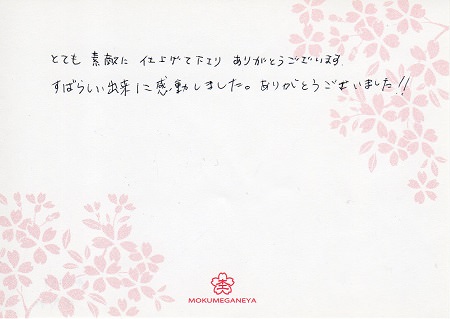 とても 素敵に 仕上げて下さり ありがとうございます
すばらしい出来に感動しました。ありがとうございました!!
MOKUMEGANEYA